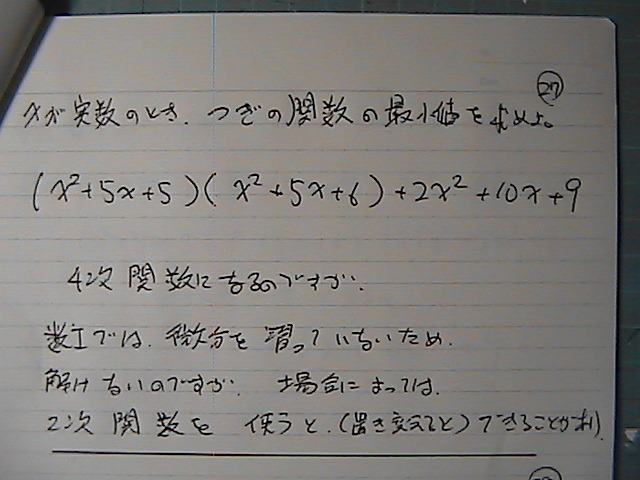 ㉗
xが実数のとき、つぎの関数の最小値を求めよ。
(x²+5x+5)(x²+5x+6)+2x²+10x+9
4次関数になるのですが、
数Iでは、微分を習っていないため、
解けないのですが、場合によっては、
2次関数を使うと、(置き変えると)できることがあり)